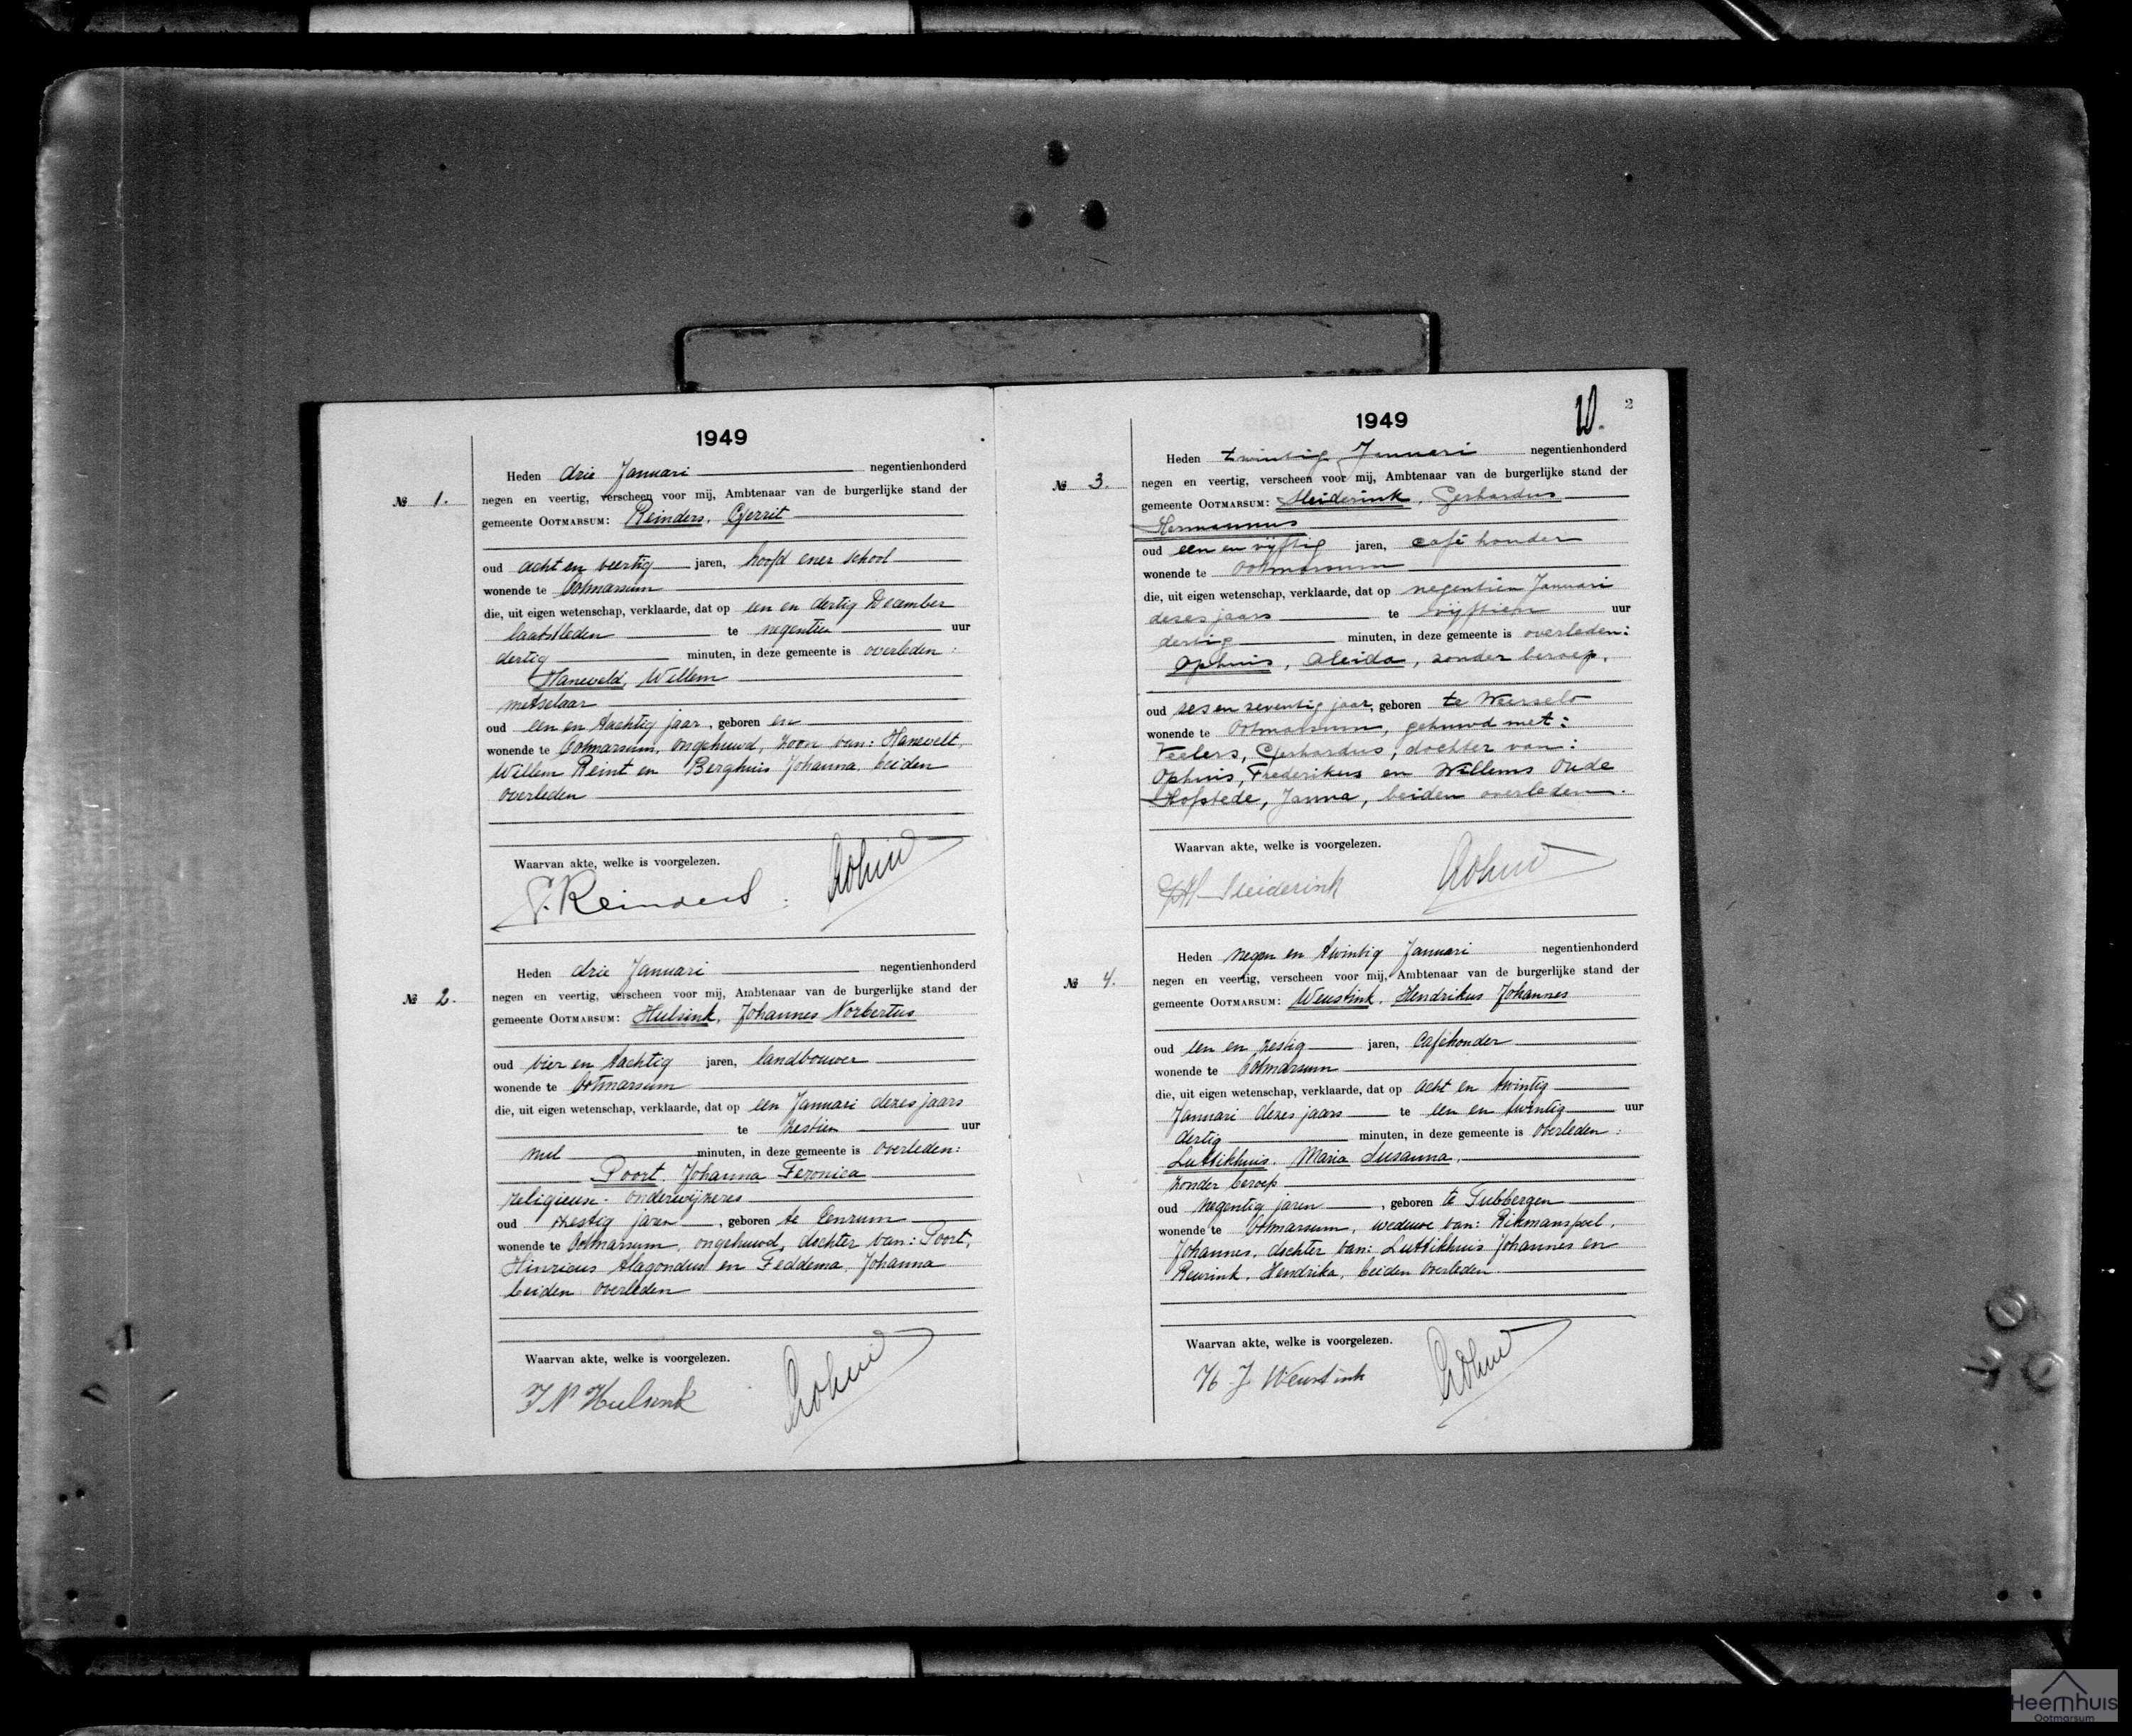 1949
Heden drie Januari negentienhonderd
№ 1. negen en veertig, verscheen voor mij, Ambtenaar van de burgerlijke stand der
gemeente OOTMARSUM: Reinders, Gerrit
oud acht en veertig jaren, hoofd ener school
wonende te Ootmarsum
die, uit eigen wetenschap, verklaarde, dat op een en dertig December
laatstleden te negentien uur
dertig minuten, in deze gemeente is overleden:
Haneveld, Willem
metselaar
oud een en tachtig jaar, geboren en
wonende te Ootmarsum, ongehuwd, zoon van: Hanevelt,
Willem Reint en Berghuis Johanna, beiden
overleden
Waarvan akte, welke is voorgelezen.
G. Reinders
Heden drie Januari negentienhonderd
№ 2. negen en veertig, verscheen voor mij, Ambtenaar van de burgerlijke stand der
gemeente OOTMARSUM: Hulsink, Johannes Norbertus
oud vier en tachtig jaren, landbouwer
wonende te Ootmarsum
die, uit eigen wetenschap, verklaarde, dat op een Januari dezes jaars
te zestien uur
nul minuten, in deze gemeente is overleden:
Poort, Johanna Feronica
religieuse-onderwijzeres
oud zestig jaren, geboren te Eenrum
wonende te Ootmarsum, ongehuwd, dochter van: Poort,
Hinricus Alagondus en Feddema, Johanna
beiden overleden
Waarvan akte, welke is voorgelezen.
J N Hulsink
2
1949
Heden twintig Januari negentienhonderd
№ 3. negen en veertig, verscheen voor mij, Ambtenaar van de burgerlijke stand der
gemeente OOTMARSUM: Sleiderink, Gerhardus
Hermannus
oud een en vijftig jaren, caféhouder
wonende te Ootmarsum
die, uit eigen wetenschap, verklaarde, dat op negentien Januari
dezes jaars te vijftien uur
dertig minuten, in deze gemeente is overleden:
Ophuis, Aleida, zonder beroep,
oud zes en zeventig jaar, geboren te Weerselo
wonende te Ootmarsum, gehuwd met:
Veelers, Gerhardus, dochter van:
Ophuis, Frederikus en Willems Oude
Hofstede, Janna, beiden overleden.
Waarvan akte, welke is voorgelezen.
GH Sleiderink
Heden negen en twintig Januari negentienhonderd
№ 4. negen en veertig, verscheen voor mij, Ambtenaar van de burgerlijke stand der
gemeente OOTMARSUM: Weustink, Hendrikus Johannes
oud een en zestig jaren, Caféhouder
wonende te Ootmarsum
die, uit eigen wetenschap, verklaarde, dat op acht en twintig
Januari dezes jaars te een en twintig uur
dertig minuten, in deze gemeente is overleden:
Luttikhuis, Maria Susanna,
zonder beroep
oud negentig jaren, geboren te Tubbergen
wonende te Ootmarsum, weduwe van: Rikmanspoel,
Johannes, dochter van: Luttikhuis Johannes en
Reurink, Hendrika, beiden overleden.
Waarvan akte, welke is voorgelezen.
H J Weustink
Heemhuis
Ootmarsum